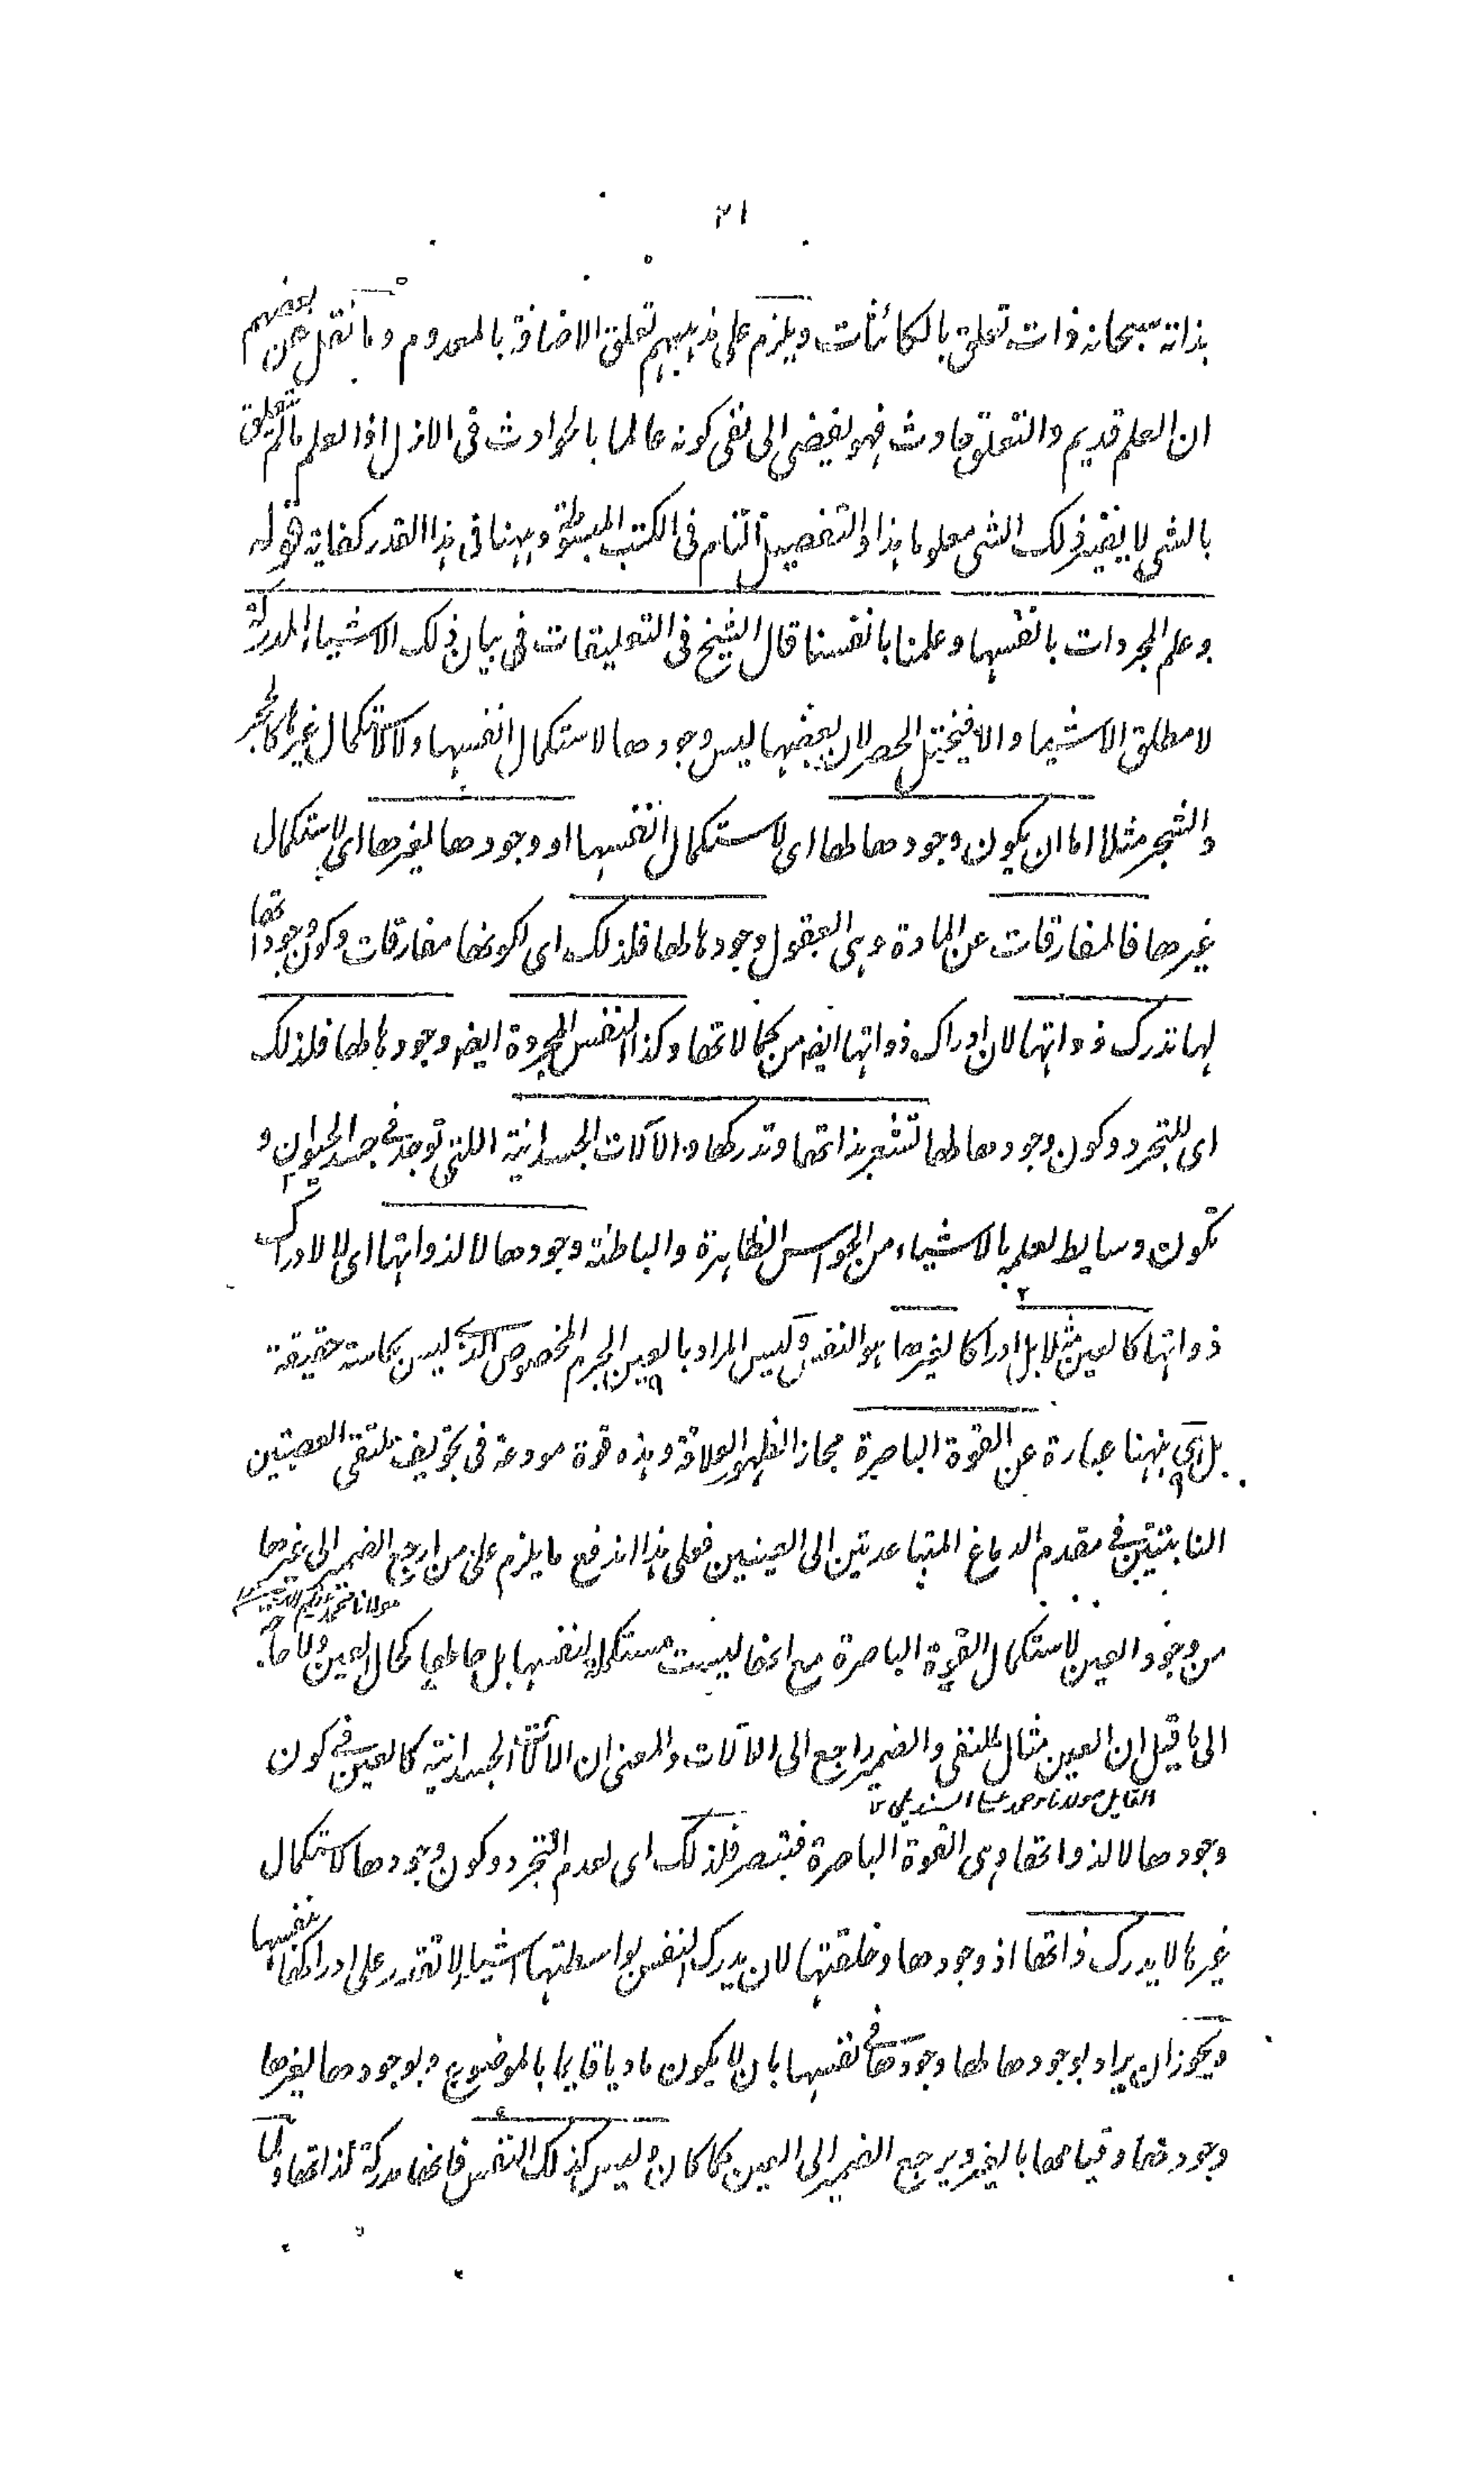 ٢١
بذاته سبحانه ذات تعلق بالكائنات ويلزم على مذهبهم تعلق الاضافة بالمعدوم وما نقل عن بعضهم
ان العلم قديم والتعلق حادث فهو يفضى الى نفى كونه عالما بالحوادث فى الازل اذا العلم ما لم يتعلق
بالشى لا يصير ذلك الشى معلوما هذا والتفصيل التام فى الكتب المبسوطة وههنا فى هذا القدر كفاية قوله
وعلم المجردات بانفسها وعلمنا بانفسنا قال الشيخ فى التعليقات فى بيان ذلك الاشياء المدركة
لا مطلق الاشياء والا فيختل الحصر لان بعضها ليس وجودها لاستكمال انفسها ولا لاستكمال غيرها كالحجر
والشجر مثلا اما ان يكون وجودها لها اى لاستكمال انفسها او وجودها لغيرها اى لاستكمال
غيرها فالمفارقات عن المادة وهى العقول وجودها لها فلذلك اى لكونها مفارقات وكون وجوداتها
لها تدرك ذواتها لان ادراك ذواتها ايضا من كمالاتها وكذا النفس المجردة ايضا وجودها لها فلذلك
اى للتجرد وكون وجودها لها تشعر بذاتها وتدركها والآلات الجسدانية اللتى توجد فى جسد الحيوان و
تكون وسايط لعلمه بالاشياء من الحواس الظاهرة والباطنة وجودها لا لذواتها اى لا لادراك
ذواتها كالعين مثلا بل ادراكا لغيرها هو النفس وليس المراد بالعين الجرم المخصوص الذى ليس بحاسة حقيقة
بل هى ههنا عبارة عن القوة الباصرة مجازا لظهور العلاقة وهذه قوة مودعة فى تجويف ملتقى العصبتين
النابتتين فى مقدم الدماغ المتباعدتين الى العينين فعلى هذا اندفع ما يلزم على من ارجع الضمير الى غيرها
من وجود العين لاستكمال القوة الباصرة مع انها ليست مستكملة بنفسها بل حالها كحال العين ولا حاجة
الى ما قيل ان العين مثال للنفى والضمير راجع الى الآلات والمعنى ان الآلات الجسدانية كالعين فى كون
القايل مولانا حمد الله السنديلى
وجودها لا لذواتها وهى القوة الباصرة فتبصر فلذلك اى لعدم التجرد وكون وجودها لاستكمال
غيرها لا يدرك ذاتها اذ وجودها وخلقتها لان يدرك النفس بواسطتها اشياء لا تقتدر على ادراكها بنفسها
ويجوز ان يراد بوجودها لها وجودها فى نفسها بان لا يكون ماديا قايما بالموضوع وبوجودها لغيرها
وجودها وقيامها بالغير ويرجع الضمير الى العين كما كان وليس كذلك النفس فانها مدركة لذاتها